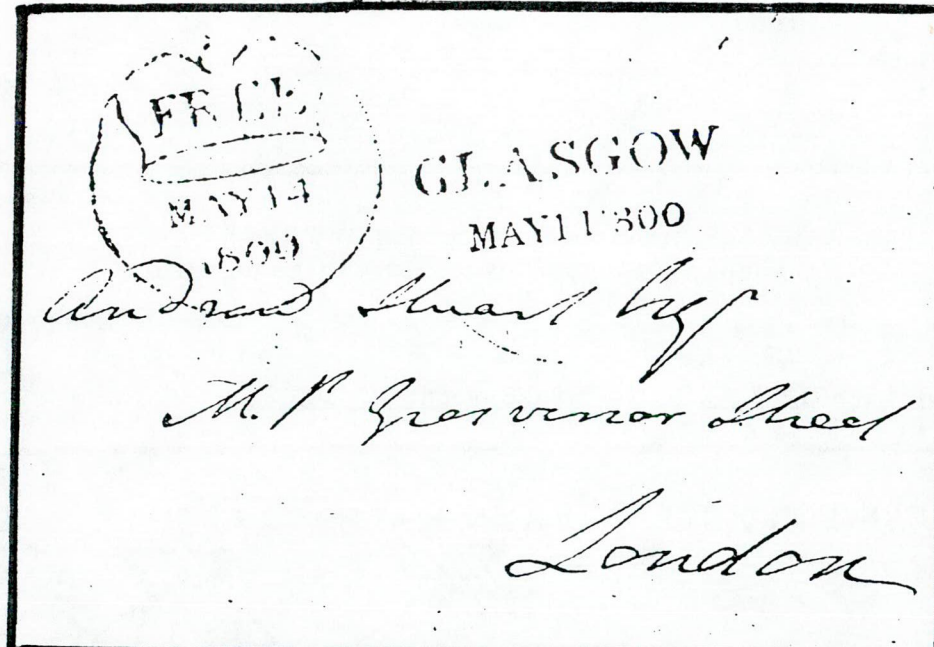 FREE
MAY 14
1800
GLASGOW
MAY 11 1800
Andrew Stuart Esqr
M.P. Grosvenor Street
London